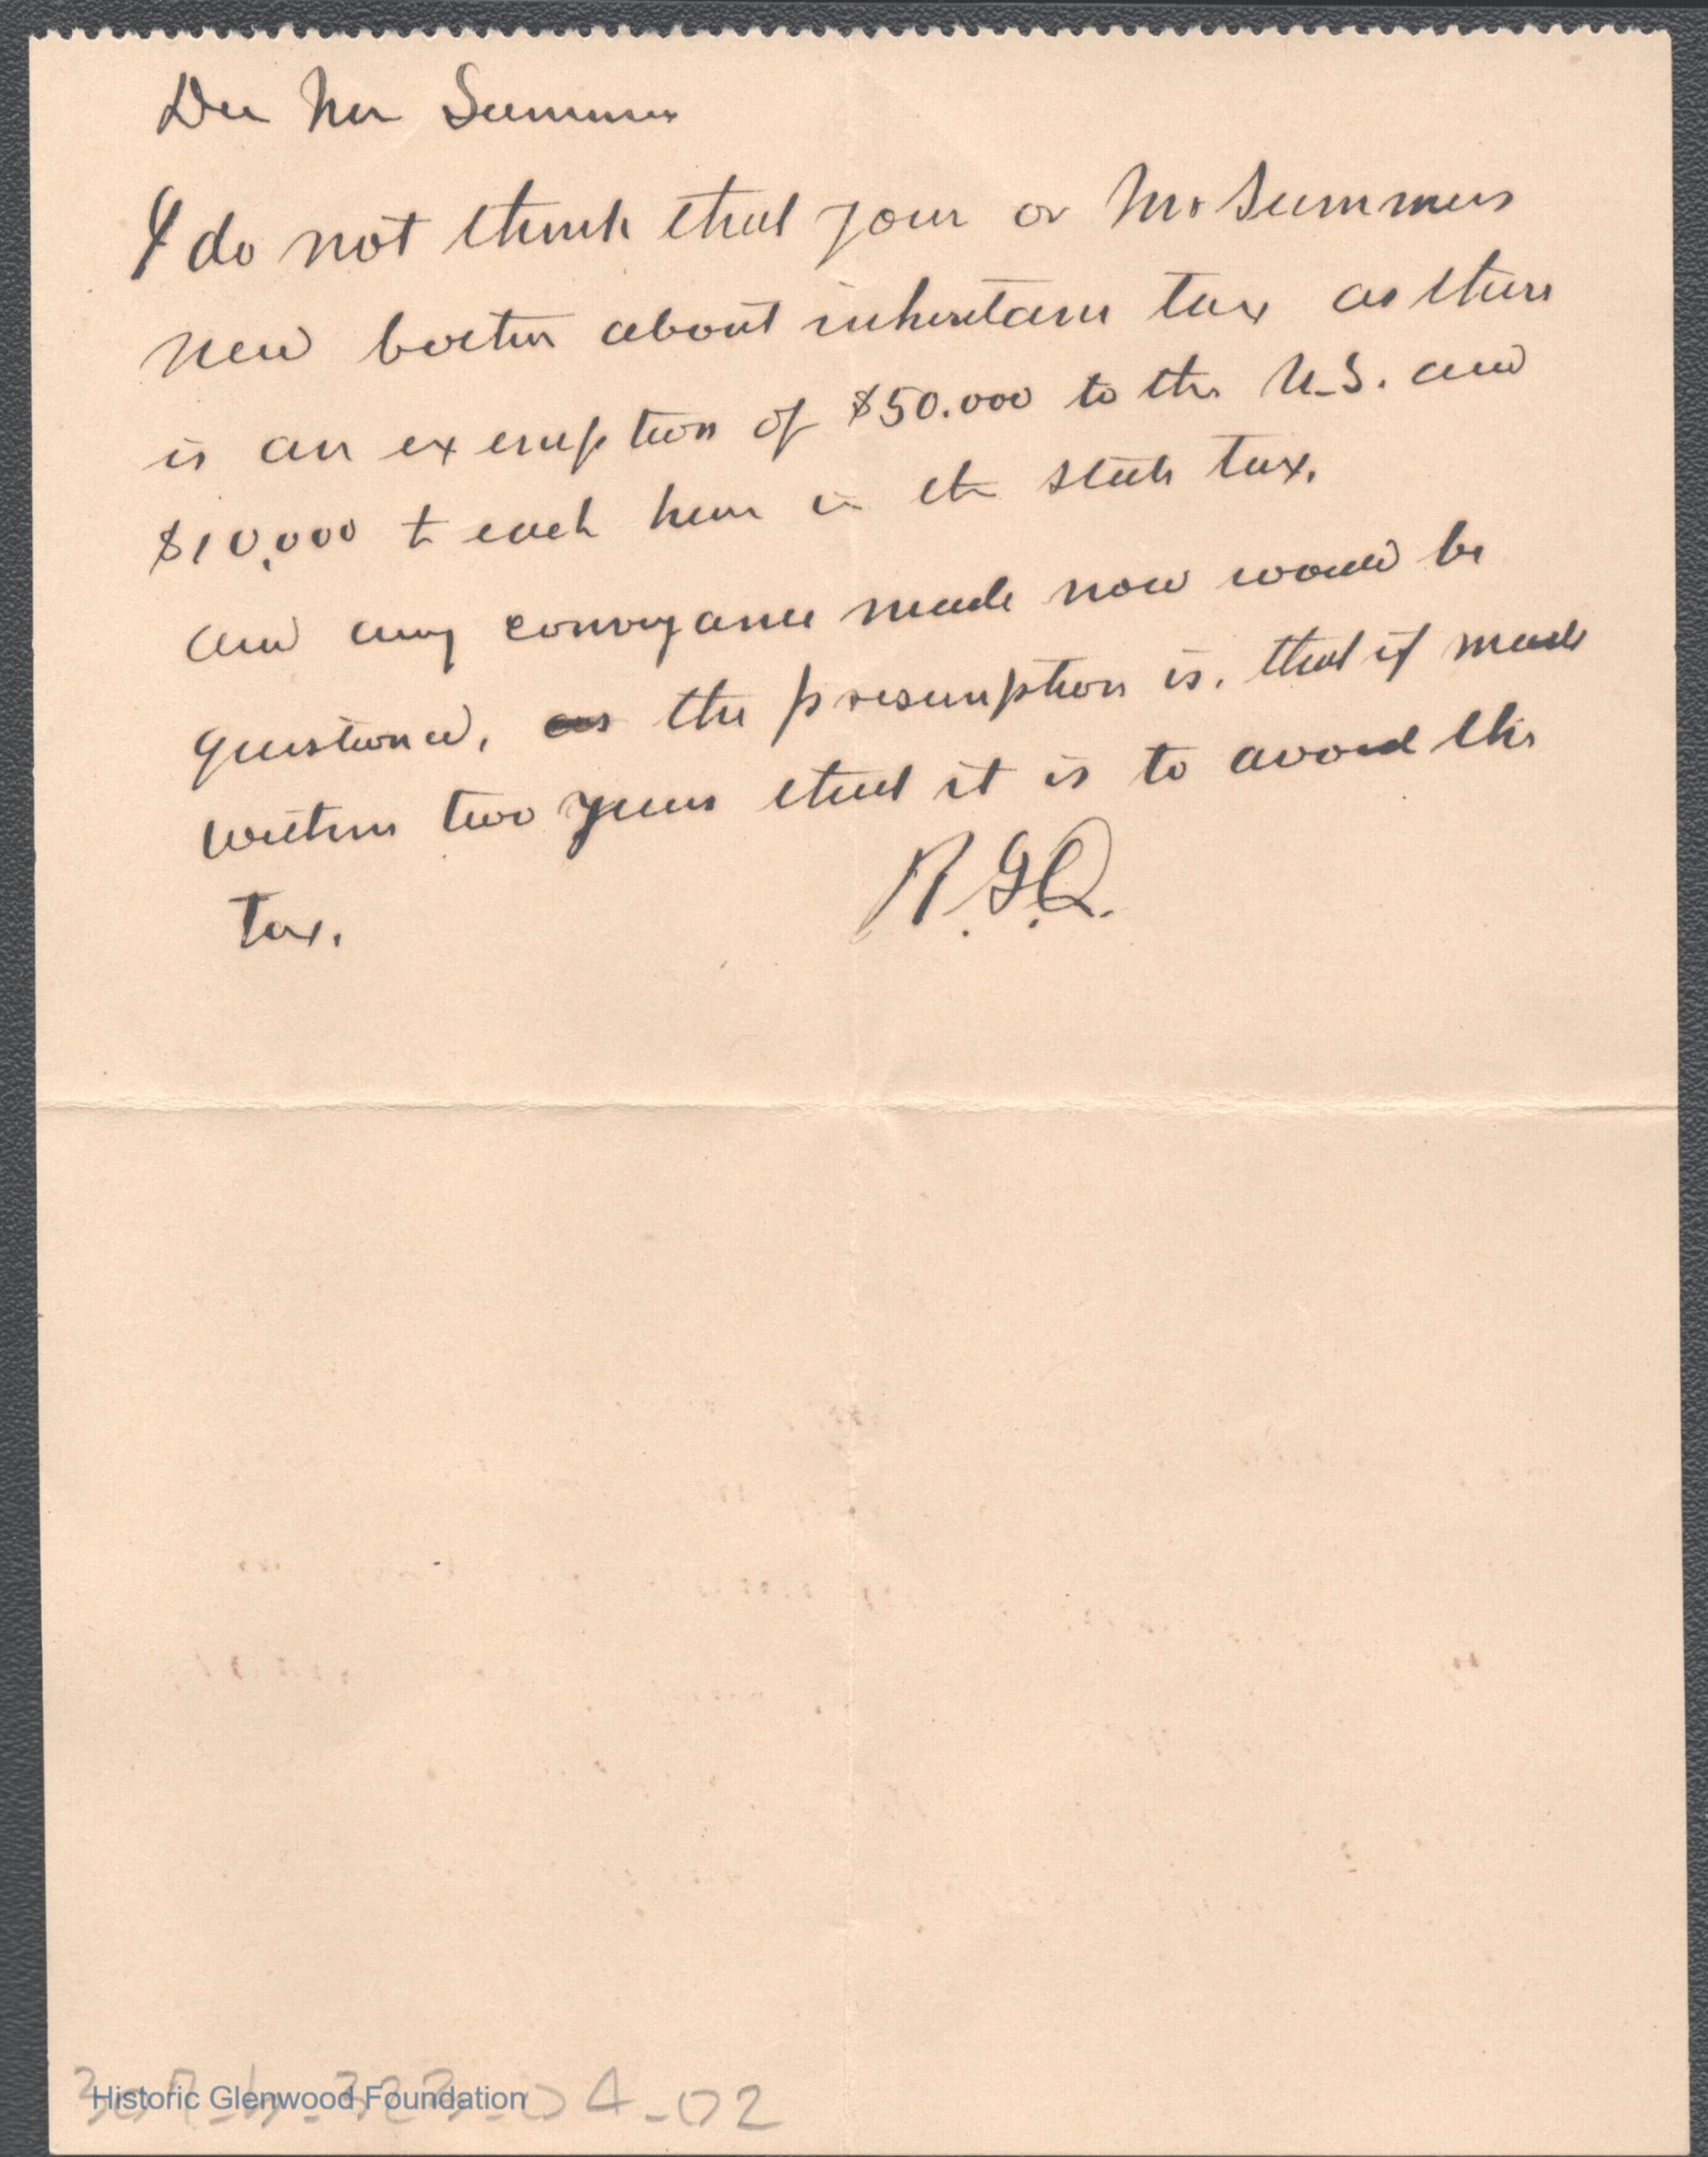 Dear Mr Summers
I do not think that your or Mr Summers
need bother about inheritance tax as there
is an exemption of $50.000 to the U.S. and
$10,000 to each heir in the state tax.
and any conveyance made now would be
questioned, as the presumption is, that if made
within two years that it is to avoid the
tax.
R.G.Q.
Historic Glenwood Foundation
04-02